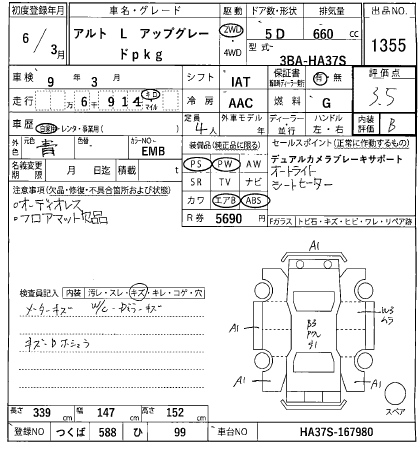 初度登録年月 車名・グレード 駆動 ドア数・形状 排気量 出品NO.
6 / 3月 アルト L アップグレードpkg 2WD・4WD 5D 660 cc 1355
型式 3BA-HA37S
車検 9年 3月 シフト IAT 保証書 有・無 評価点 3.5
走行 万 6千 914 キロ マイル 冷房 AAC 燃料 G
車歴 自家用・レンタ・事業用( ) 定員 4人 外車モデル 年 ディーラー・並行 ハンドル 左・右 内装評価 B
外色 元色 青 色替 カラーNO. EMB
装備品(純正品に限る) セールスポイント(正常に作動するもの)
PS PW AW デュアルカメラブレーキサポート
名義変更期限 月 日迄 積載 t SR TV ナビ オートライト
シートヒーター
注意事項(欠品・修復・不具合箇所および状態) カワ エアB ABS
・オーディオレス R券 5690 円
・フロアマット欠品 Fガラス トビ石・キズ・ヒビ・フレ・リペア跡
検査員記入 内装 汚レ・スレ・キズ・キレ・コゲ・穴
メーターキズ
A1
A1
A1
A1
A1
W3
ムラ
B3
スペア
長さ 339 cm 幅 147 cm 高さ 152 cm
登録NO つくば 588 ひ 99 車台NO HA37S-167980